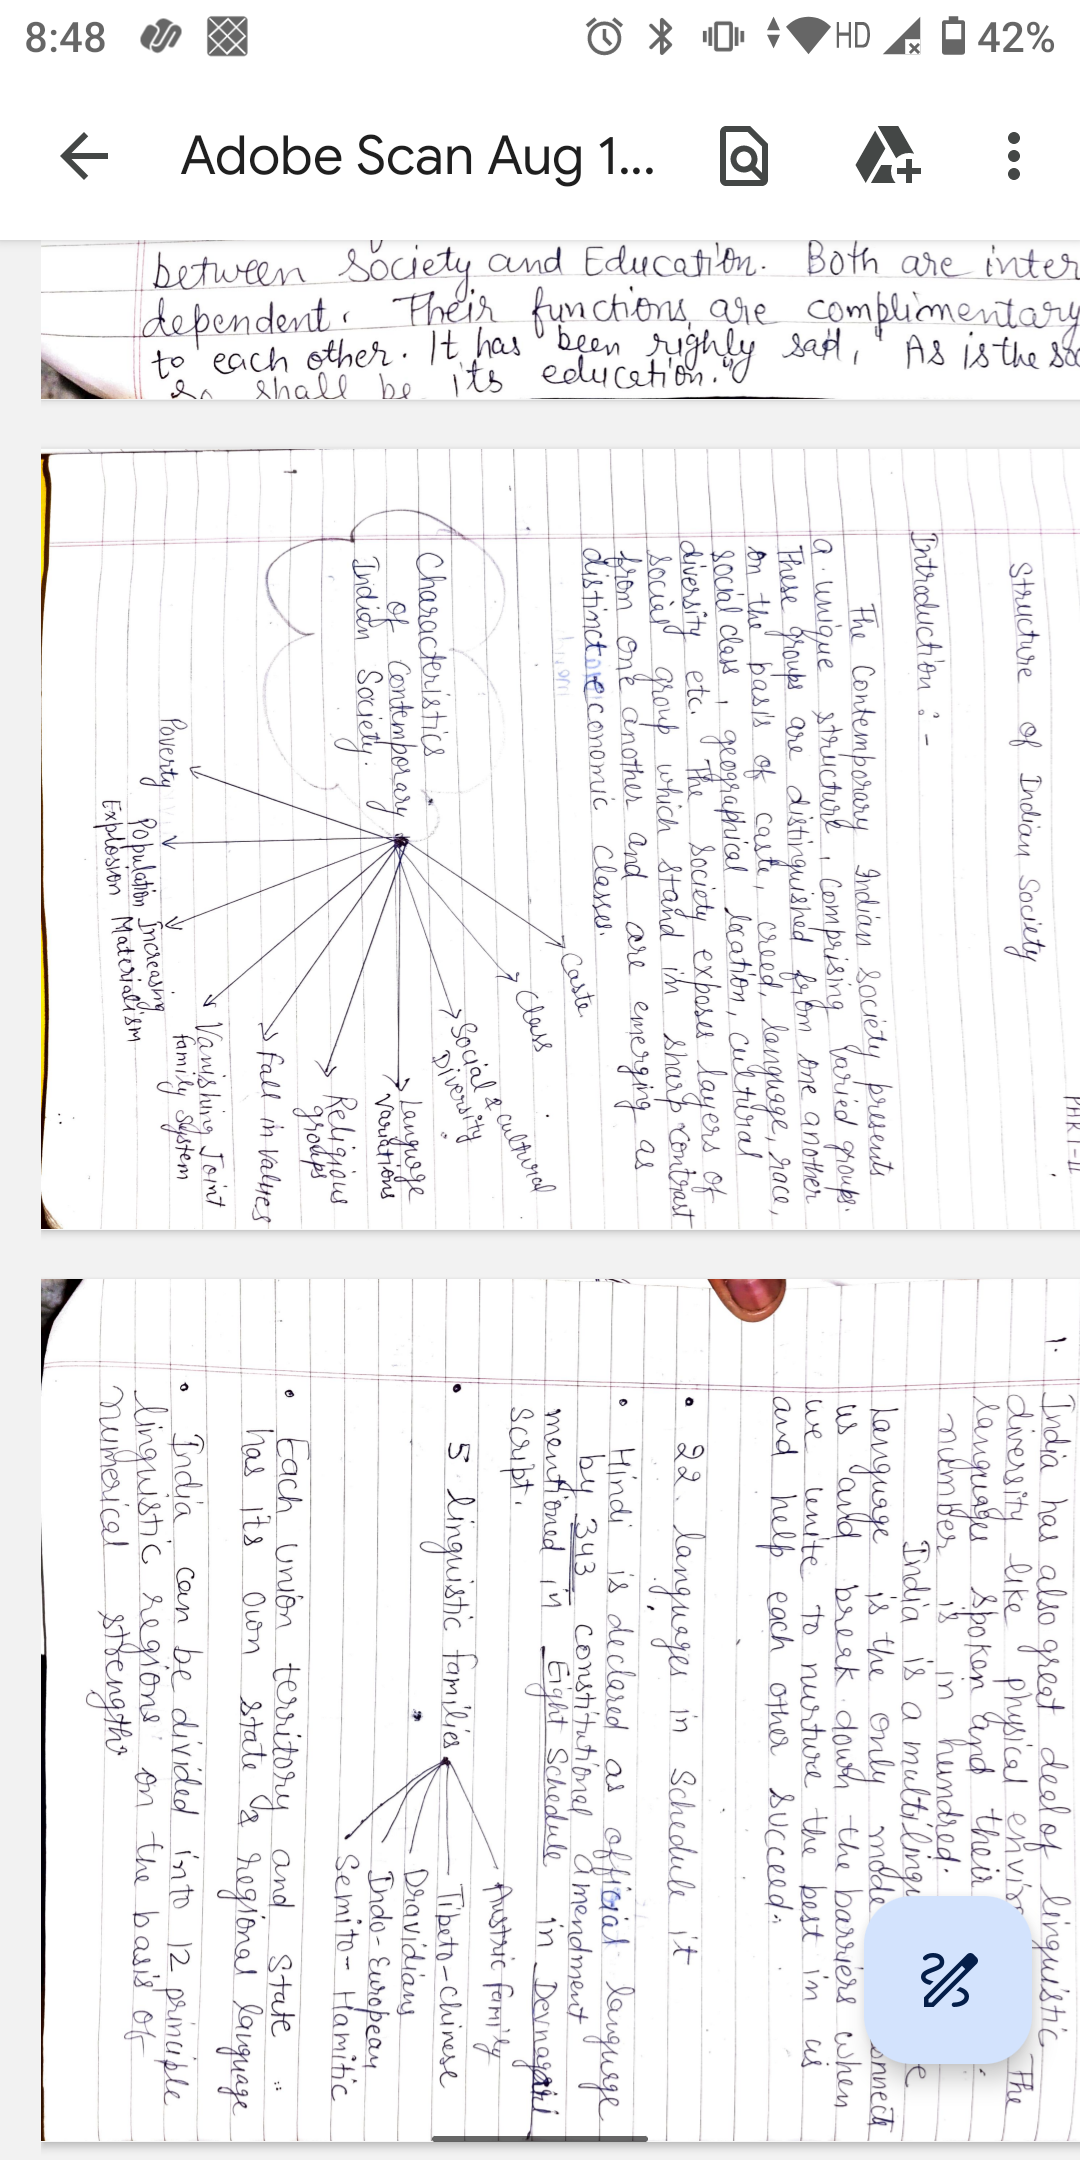 8:48
HD
42%
Adobe Scan Aug 1...
between Society and Education. Both are inter
dependent. Their functions are complimentary
to each other. It has been righly said, "As is the so
so shall be its education."
PART-II
Structure of Indian Society
Introduction :-
The Contemporary Indian Society presents
a unique structure, comprising varied groups.
These groups are distinguished from one another
on the basis of caste, creed, language, race,
social class, geographical location, cultural
diversity etc. The society exposes layers of
social group which stand in sharp contrast
from one another and are emerging as
distinct economic classes.
Characteristics
of Contemporary
Indian Society.
Caste
Class
Social & cultural
Diversity
Language
variations
Religious
groups
Fall in values
Vanishing Joint
family System
Increasing
Materialism
Population
Explosion
Poverty
1. India has also great deal of linguistic
diversity like physical envir The
languages spoken and their
number is in hundred.
India is a multilingu
Language is the only mode onnect
us and break down the barriers when
we unite to nurture the best in us
and help each other succeed.
• 22 languages in Schedule it
• Hindi is declared as official language
by 343 constitutional amendment
mentioned in Eight Schedule in Devnagari
Script.
• 5 linguistic families
Austric family
Tibeto-chinese
Dravidians
Indo-European
Semito-Hamitic
• Each union territory and State
has its own state & regional language
• India can be divided into 12 principle
linguistic regions on the basis of
numerical strength